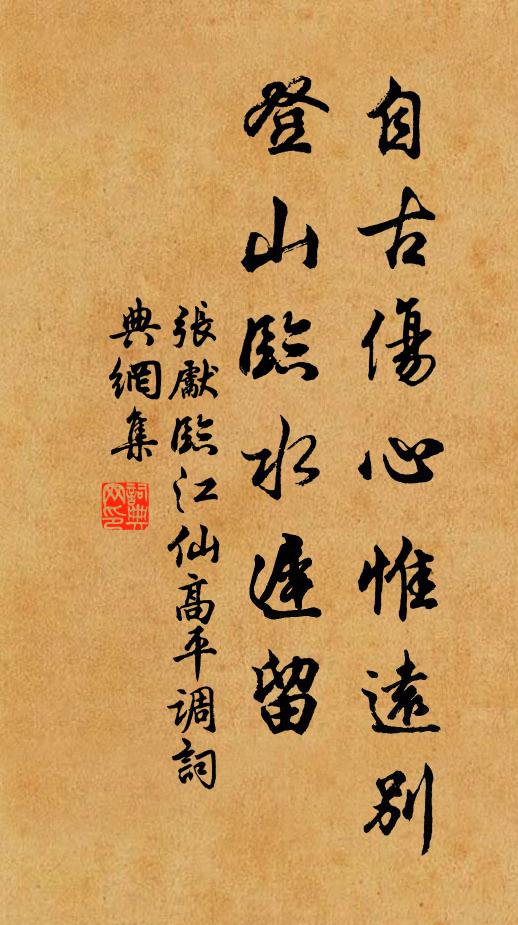 自古傷心惟遠別
登山臨水遲留
張獻臨江仙高平調詞
典網集
詞典
网印